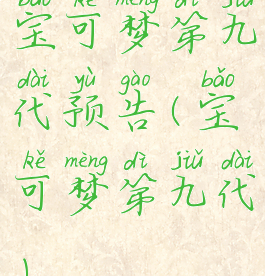 bǎo kě mèng dì jiǔ
宝可梦第九
dài yù gào bǎo
代预告(宝
kě mèng dì jiǔ dài
可梦第九代
)